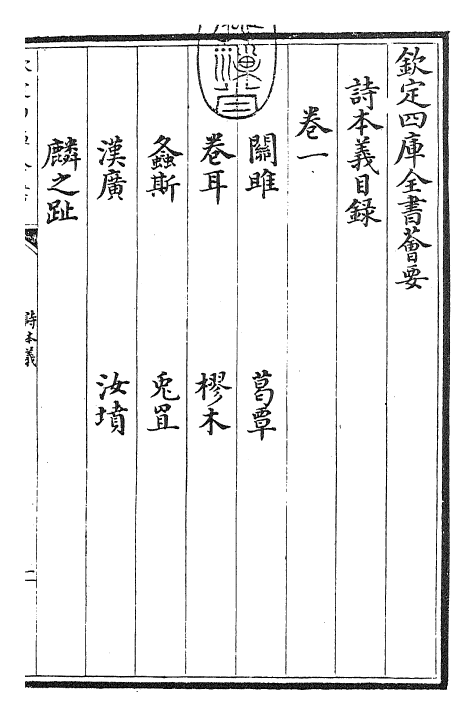 欽定四庫全書薈要
詩本義目録
卷一
關雎 葛覃
卷耳 樛木
螽斯 兎罝
漢廣 汝墳
麟之趾
詩本義